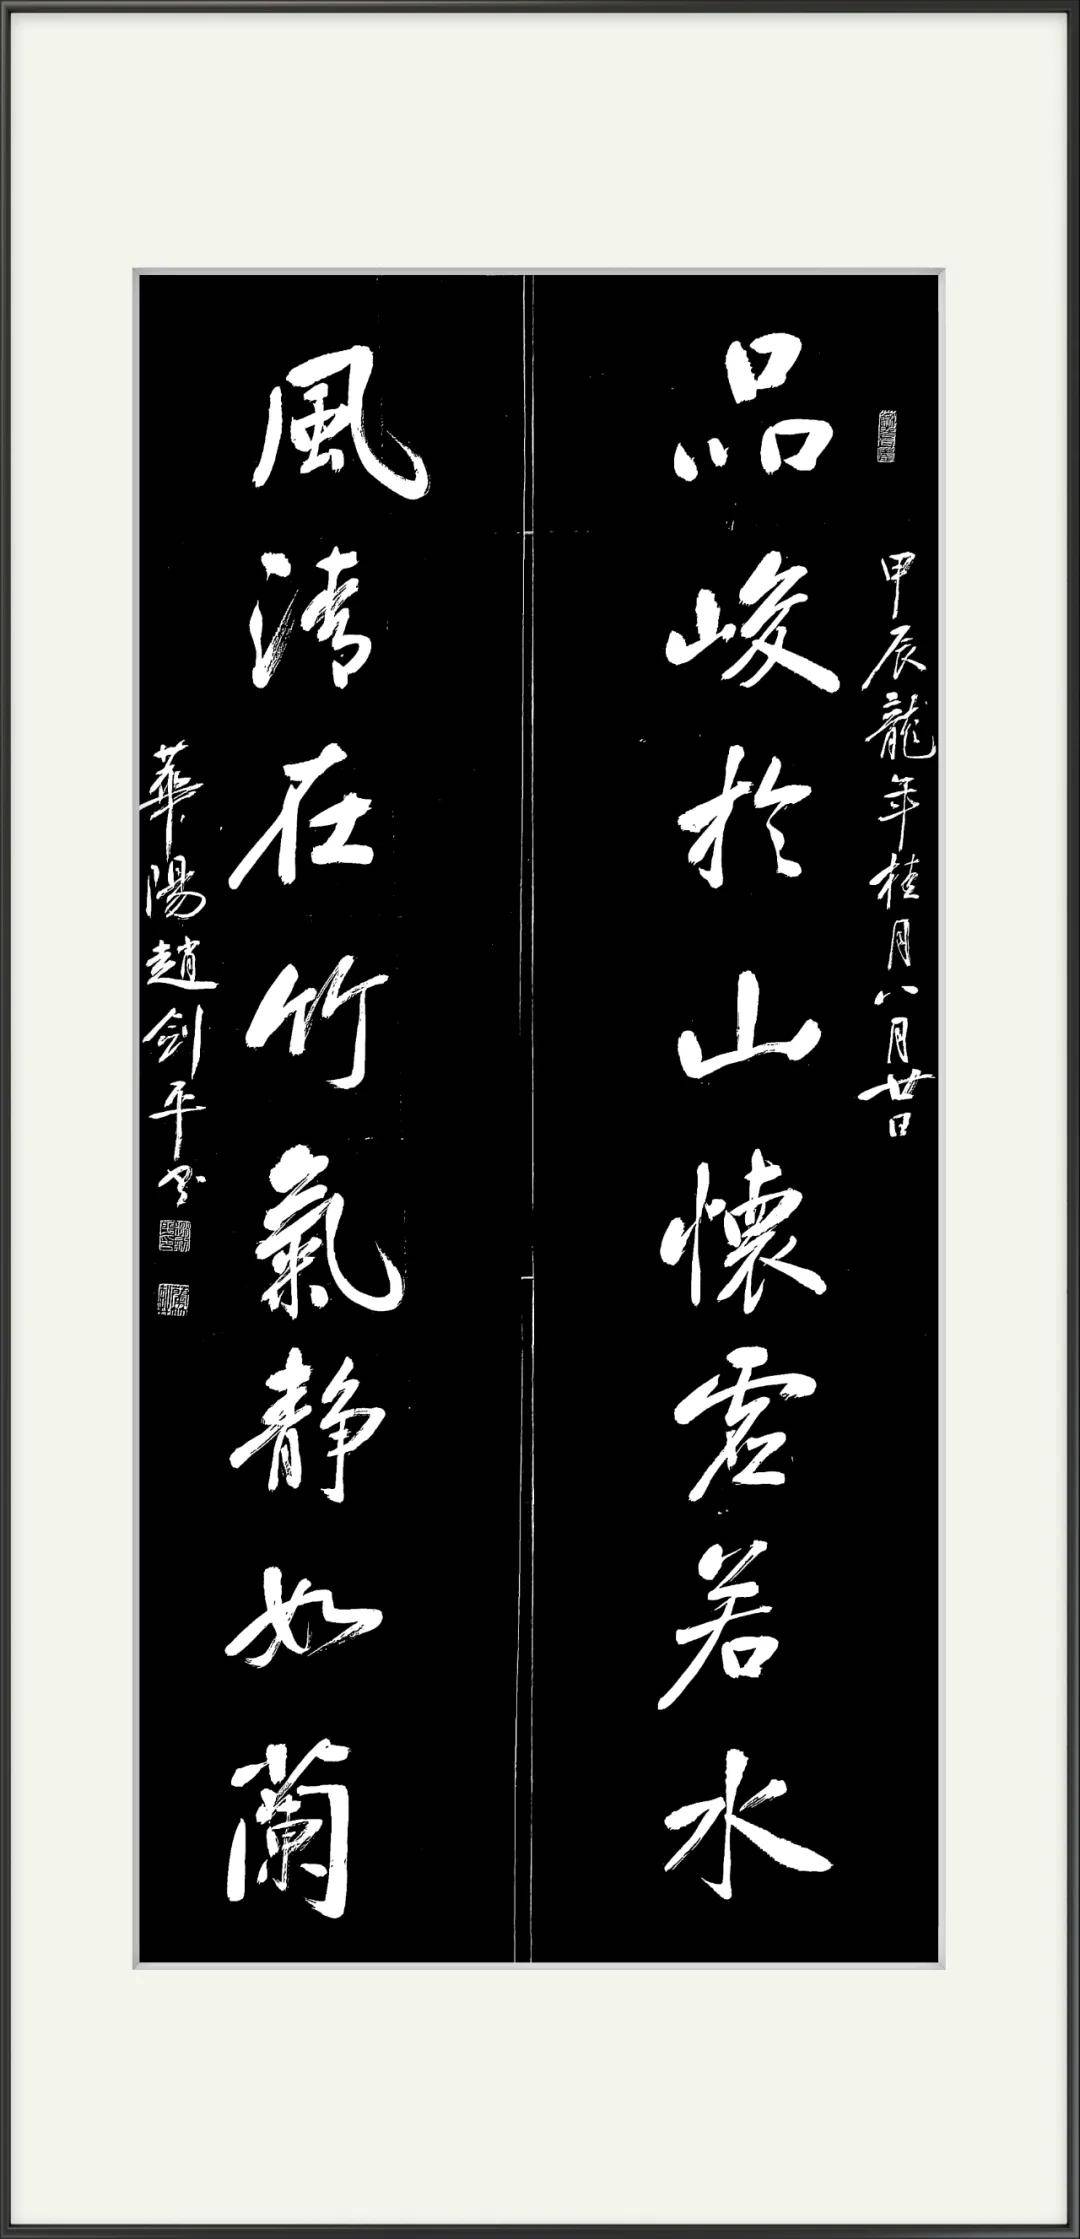 甲辰龍年桂月八月廿日
品峻於山懷虛若水
風清在竹氣静如蘭
華陽趙剑平书